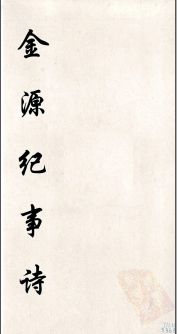 金源纪事诗